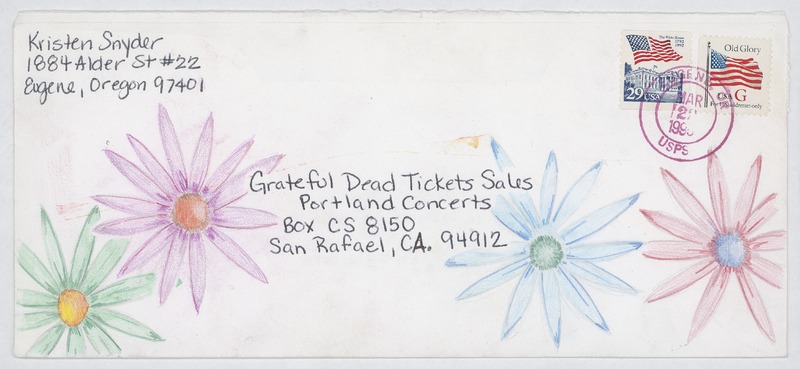 Kristen Snyder
1884 Alder St #22
Eugene, Oregon 97401
The White House
1792 1992
29 USA
Old Glory
USA G
For U.S. addresses only
MAR
USPS
Grateful Dead Tickets Sales
Portland Concerts
Box CS 8150
San Rafael, CA. 94912